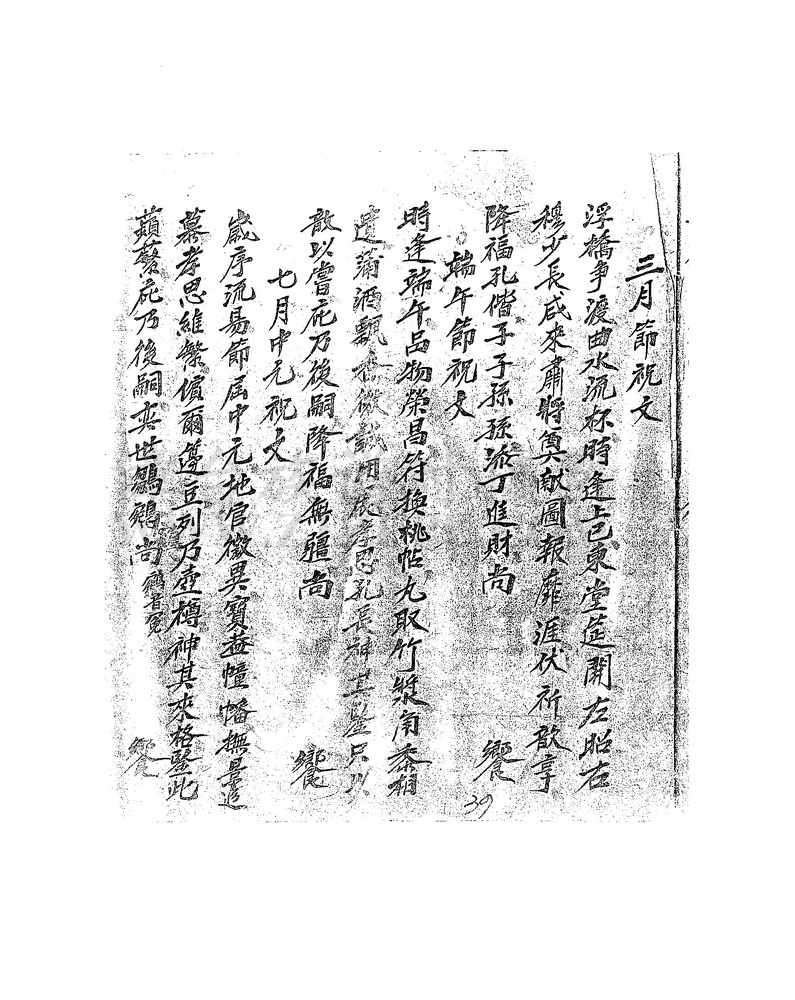 三月節祝文
浮橋争渡曲水流杯時逢上巳東堂筵開左昭右
穆少長咸來肅將奠献圖報靡涯伏祈歆享
降福孔偕子子孫孫添丁進財尚 饗
端午節祝文
時逢端午品物榮昌符換桃帖九取竹漿角黍相
遺蒲酒飄香微誠用展孝思孔長神其鑒只以
歆以嘗庇乃後嗣降福無疆尚 饗
七月中元祝文
歲序流易節届中元地官徵異寶盖幢幡撫景追
慕孝思維繁儐爾籩豆列乃壺樽神其來格鑒此
蘋蘩庇乃後嗣奕世鵷尚 饗
39